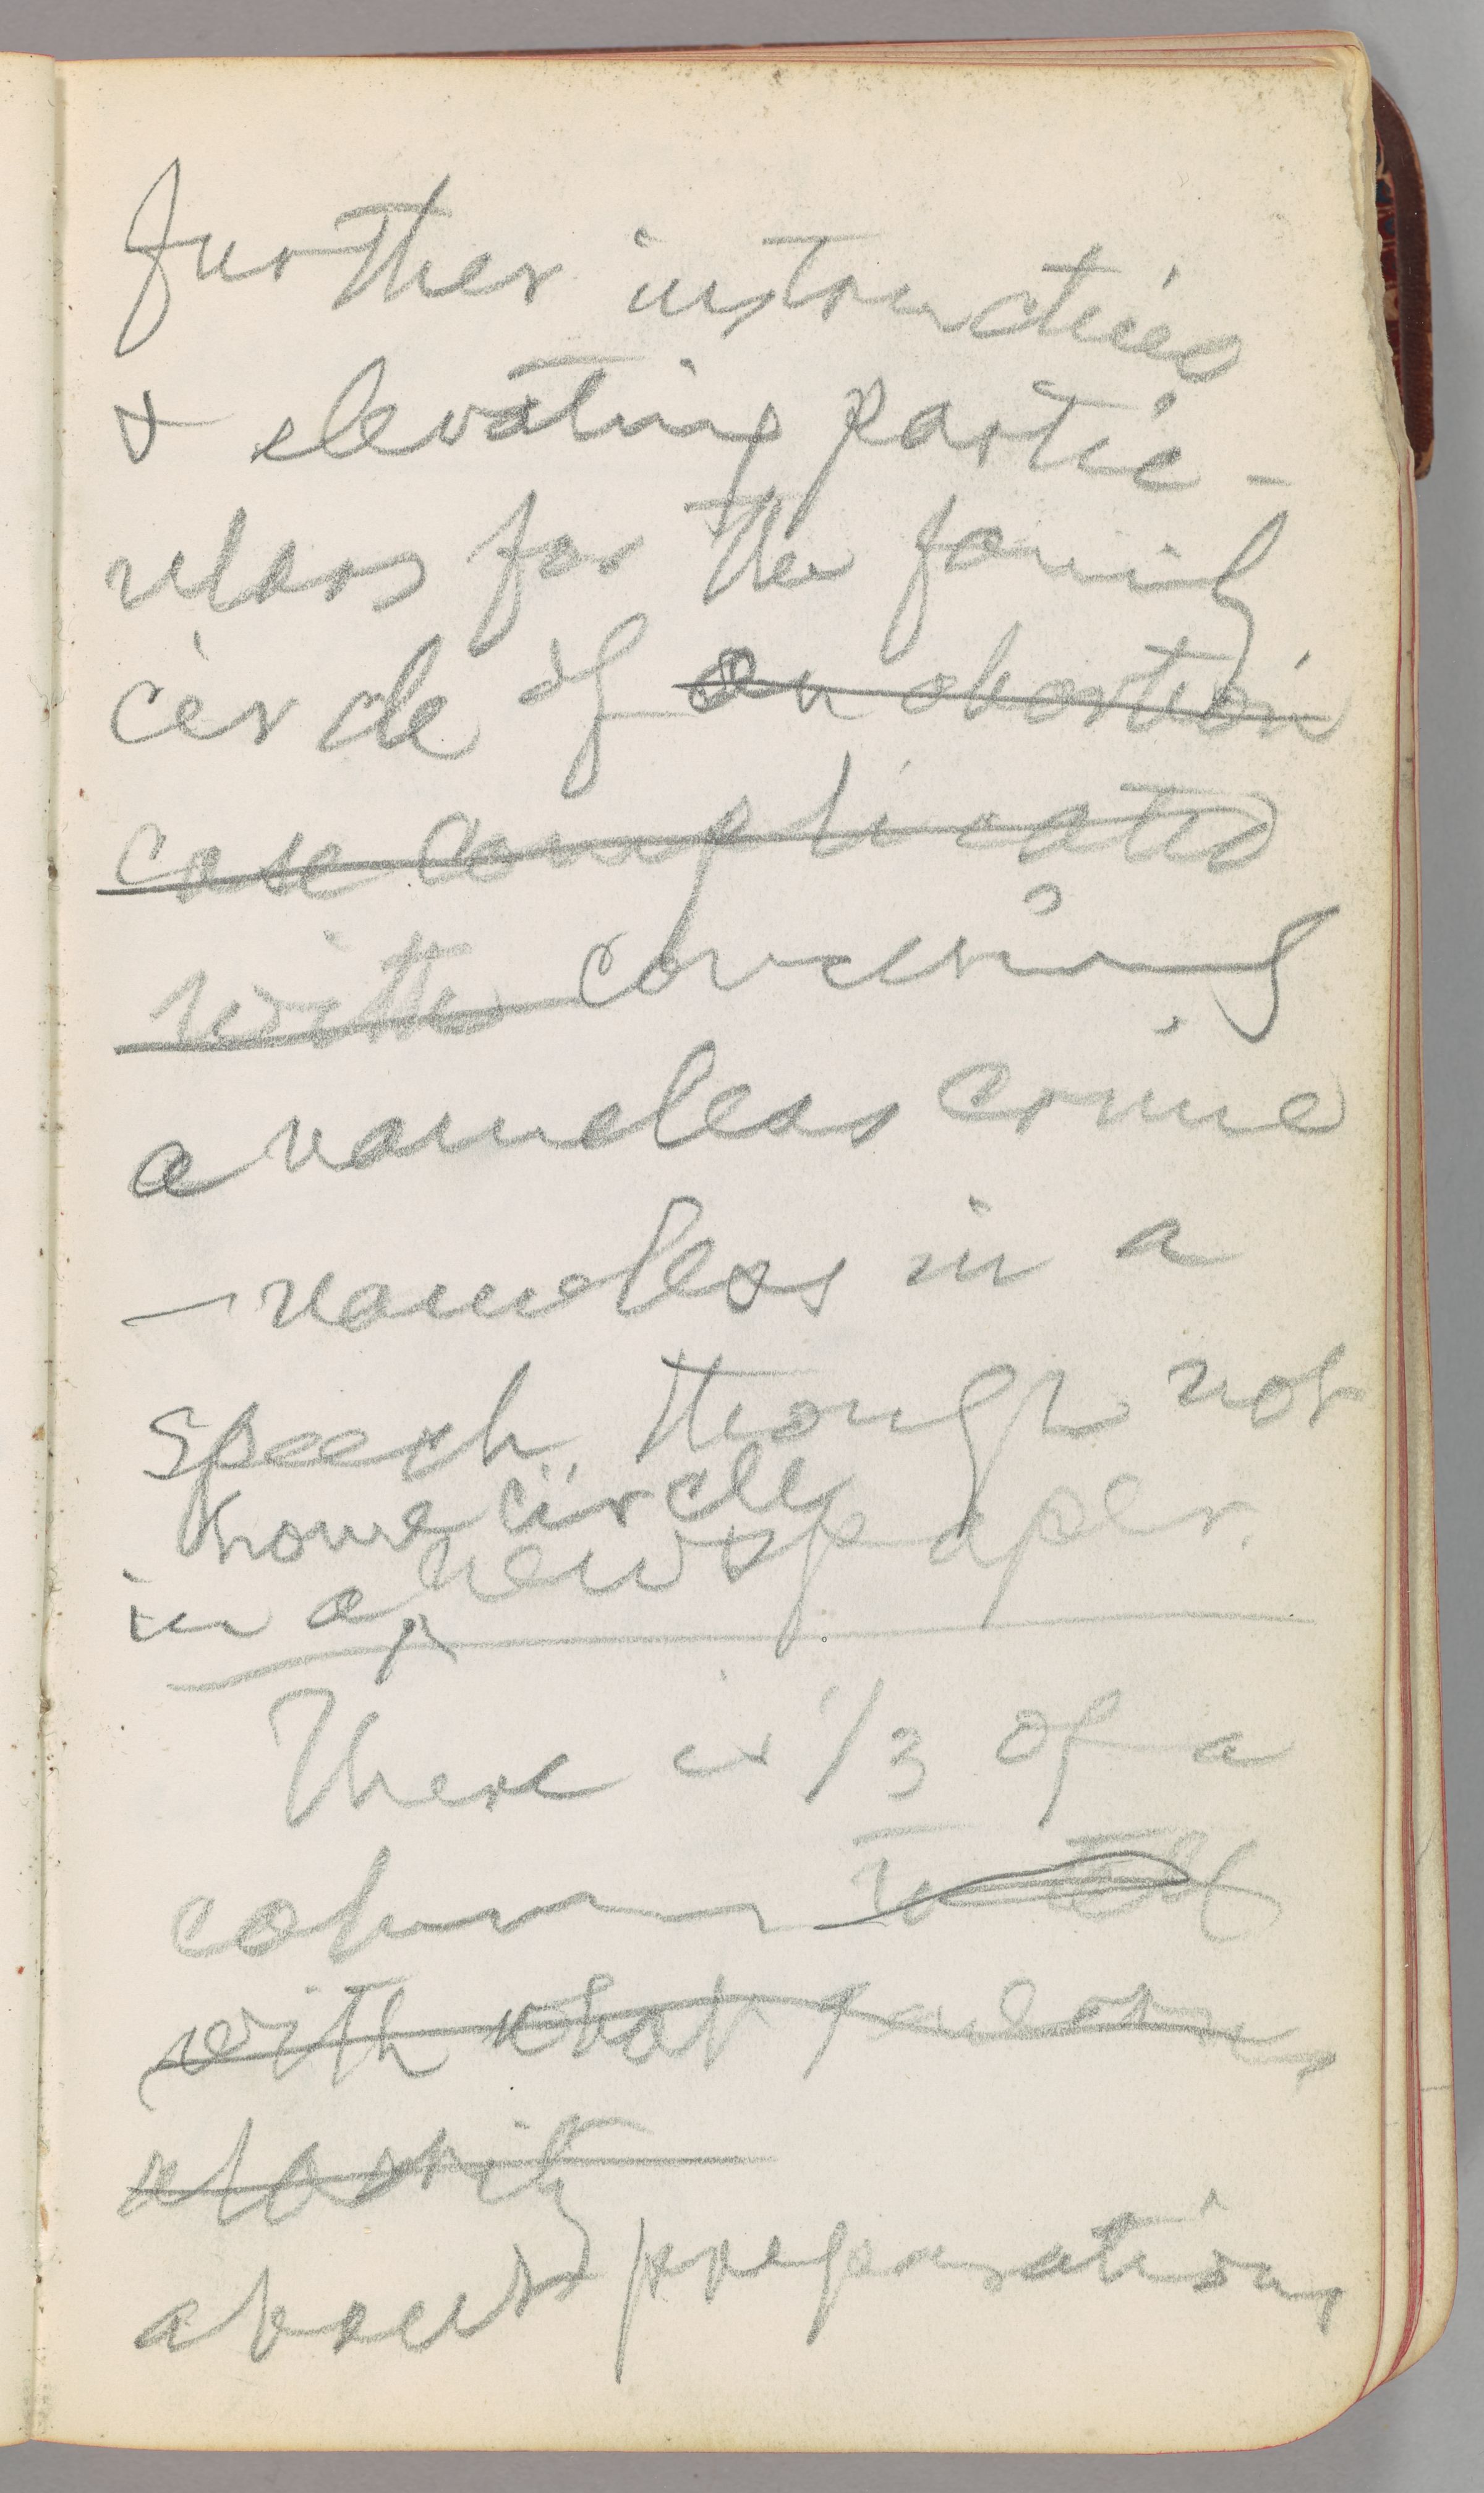 further instructive
& elevating partic-
ulars for the family
circle of an abortion
case complicated
with concerning
a nameless crime
— nameless in a
speech though not
home circle
in a ^ newspaper.
There is 1/3 of a
column to tell
with what
alacrity
about preparations